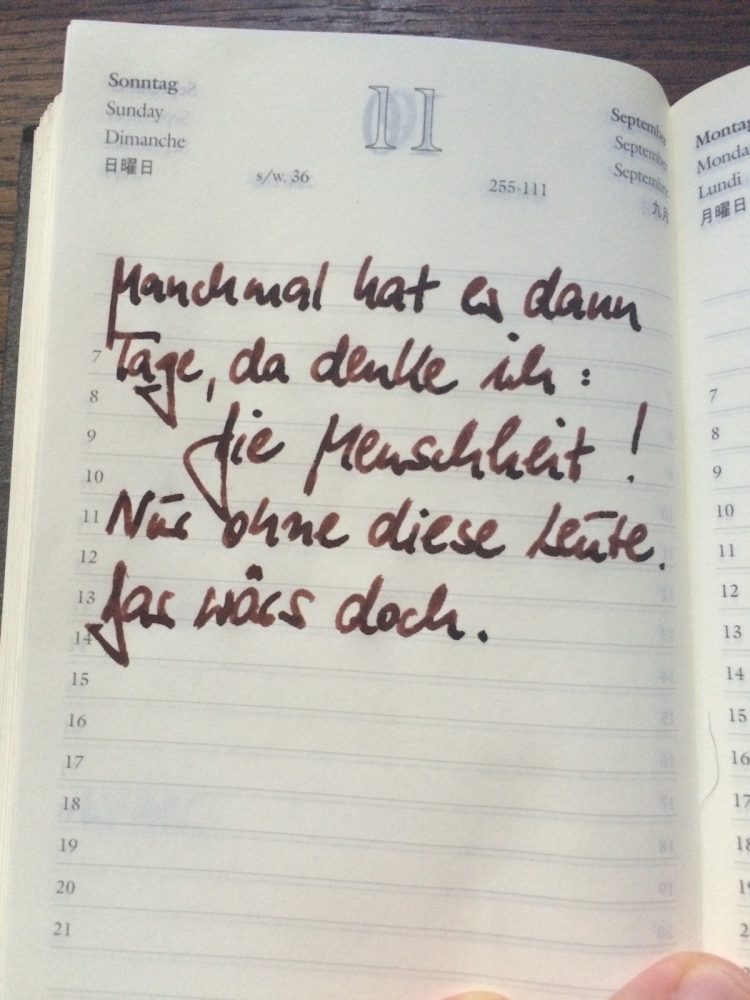 Sonntag
Sunday
Dimanche
日曜日
11
s/w. 36
255-111
September
September
Septembre
九月
Manchmal hat es dann
Tage, da denke ich:
Die Menschheit!
Nur ohne diese Leute.
Das wärs doch.
7
8
9
10
11
12
13
14
15
16
17
18
19
20
21
Montag
Monda
Lundi
月曜日
7
8
9
10
11
12
13
14
15
16
17
18